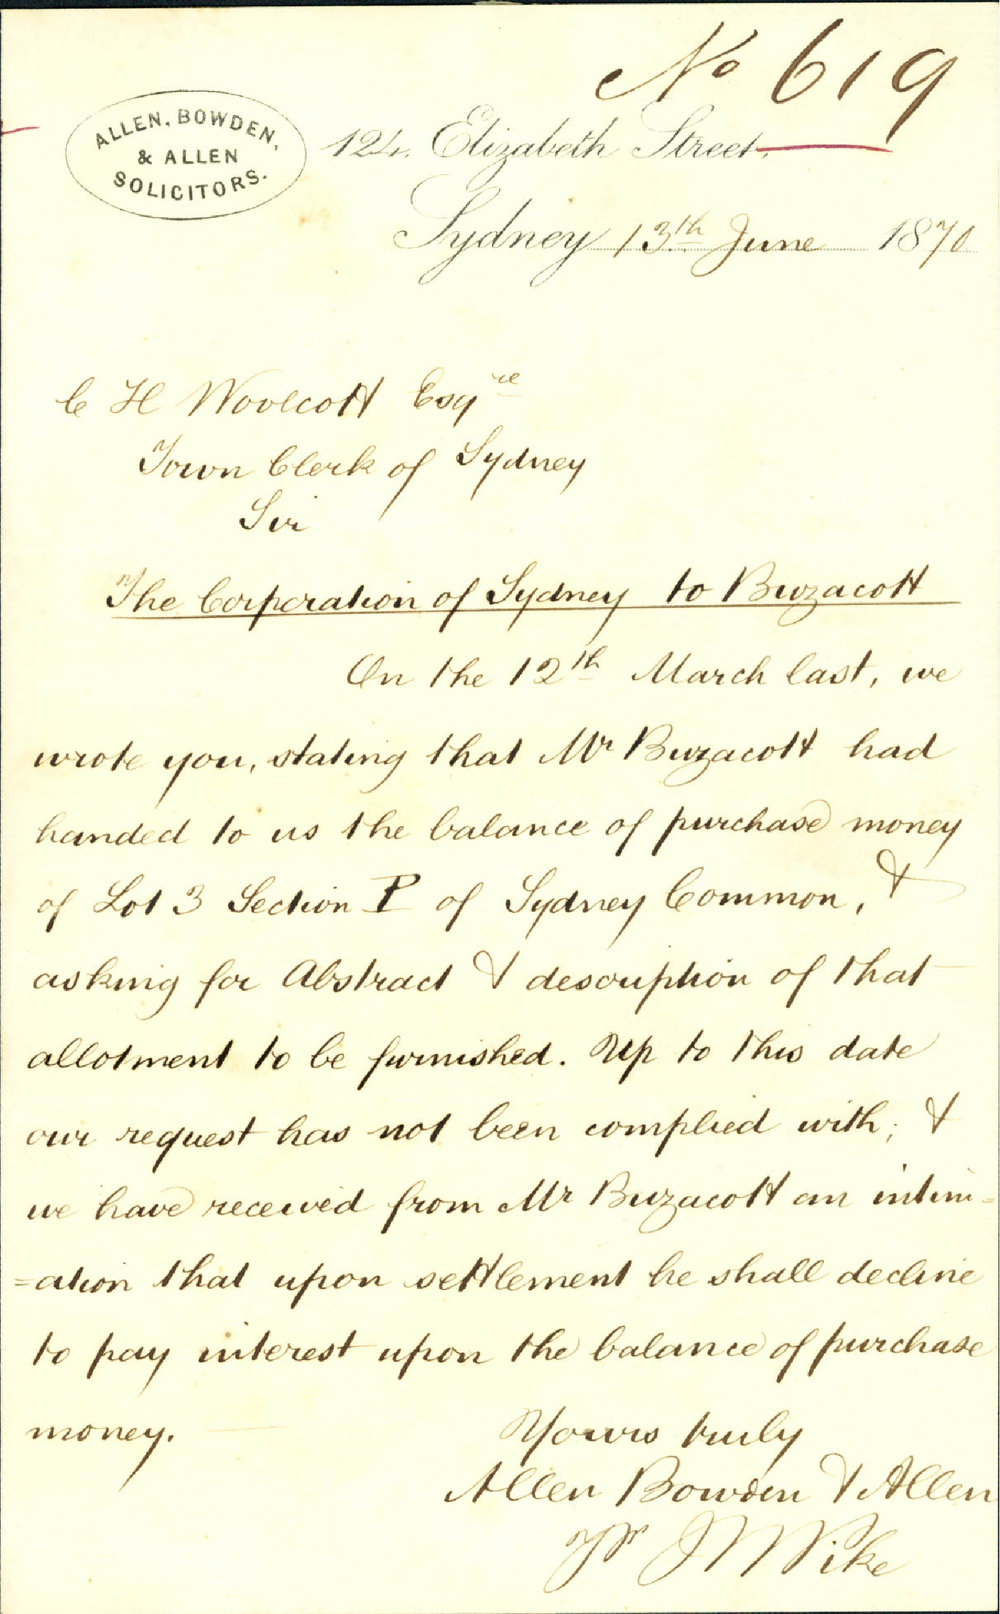 No 619
ALLEN, BOWDEN,
& ALLEN
SOLICITORS.
124. Elizabeth Street.
Sydney 13th June 1870
C H Woolcott Esqre
Town Clerk of Sydney
Sir
The Corporation of Sydney to Buzacott
On the 12th March last, we
wrote you, stating that Mr Buzacott had
handed to us the balance of purchase money
of Lot 3 Section P of Sydney Common, &
asking for Abstract & description of that
allotment to be furnished. Up to this date
our request has not been complied with; &
we have received from Mr Buzacott an intim=
=ation that upon settlement he shall decline
to pay interest upon the balance of purchase
money.
Yours truly
Allen Bowden & Allen
Pr J W Pike